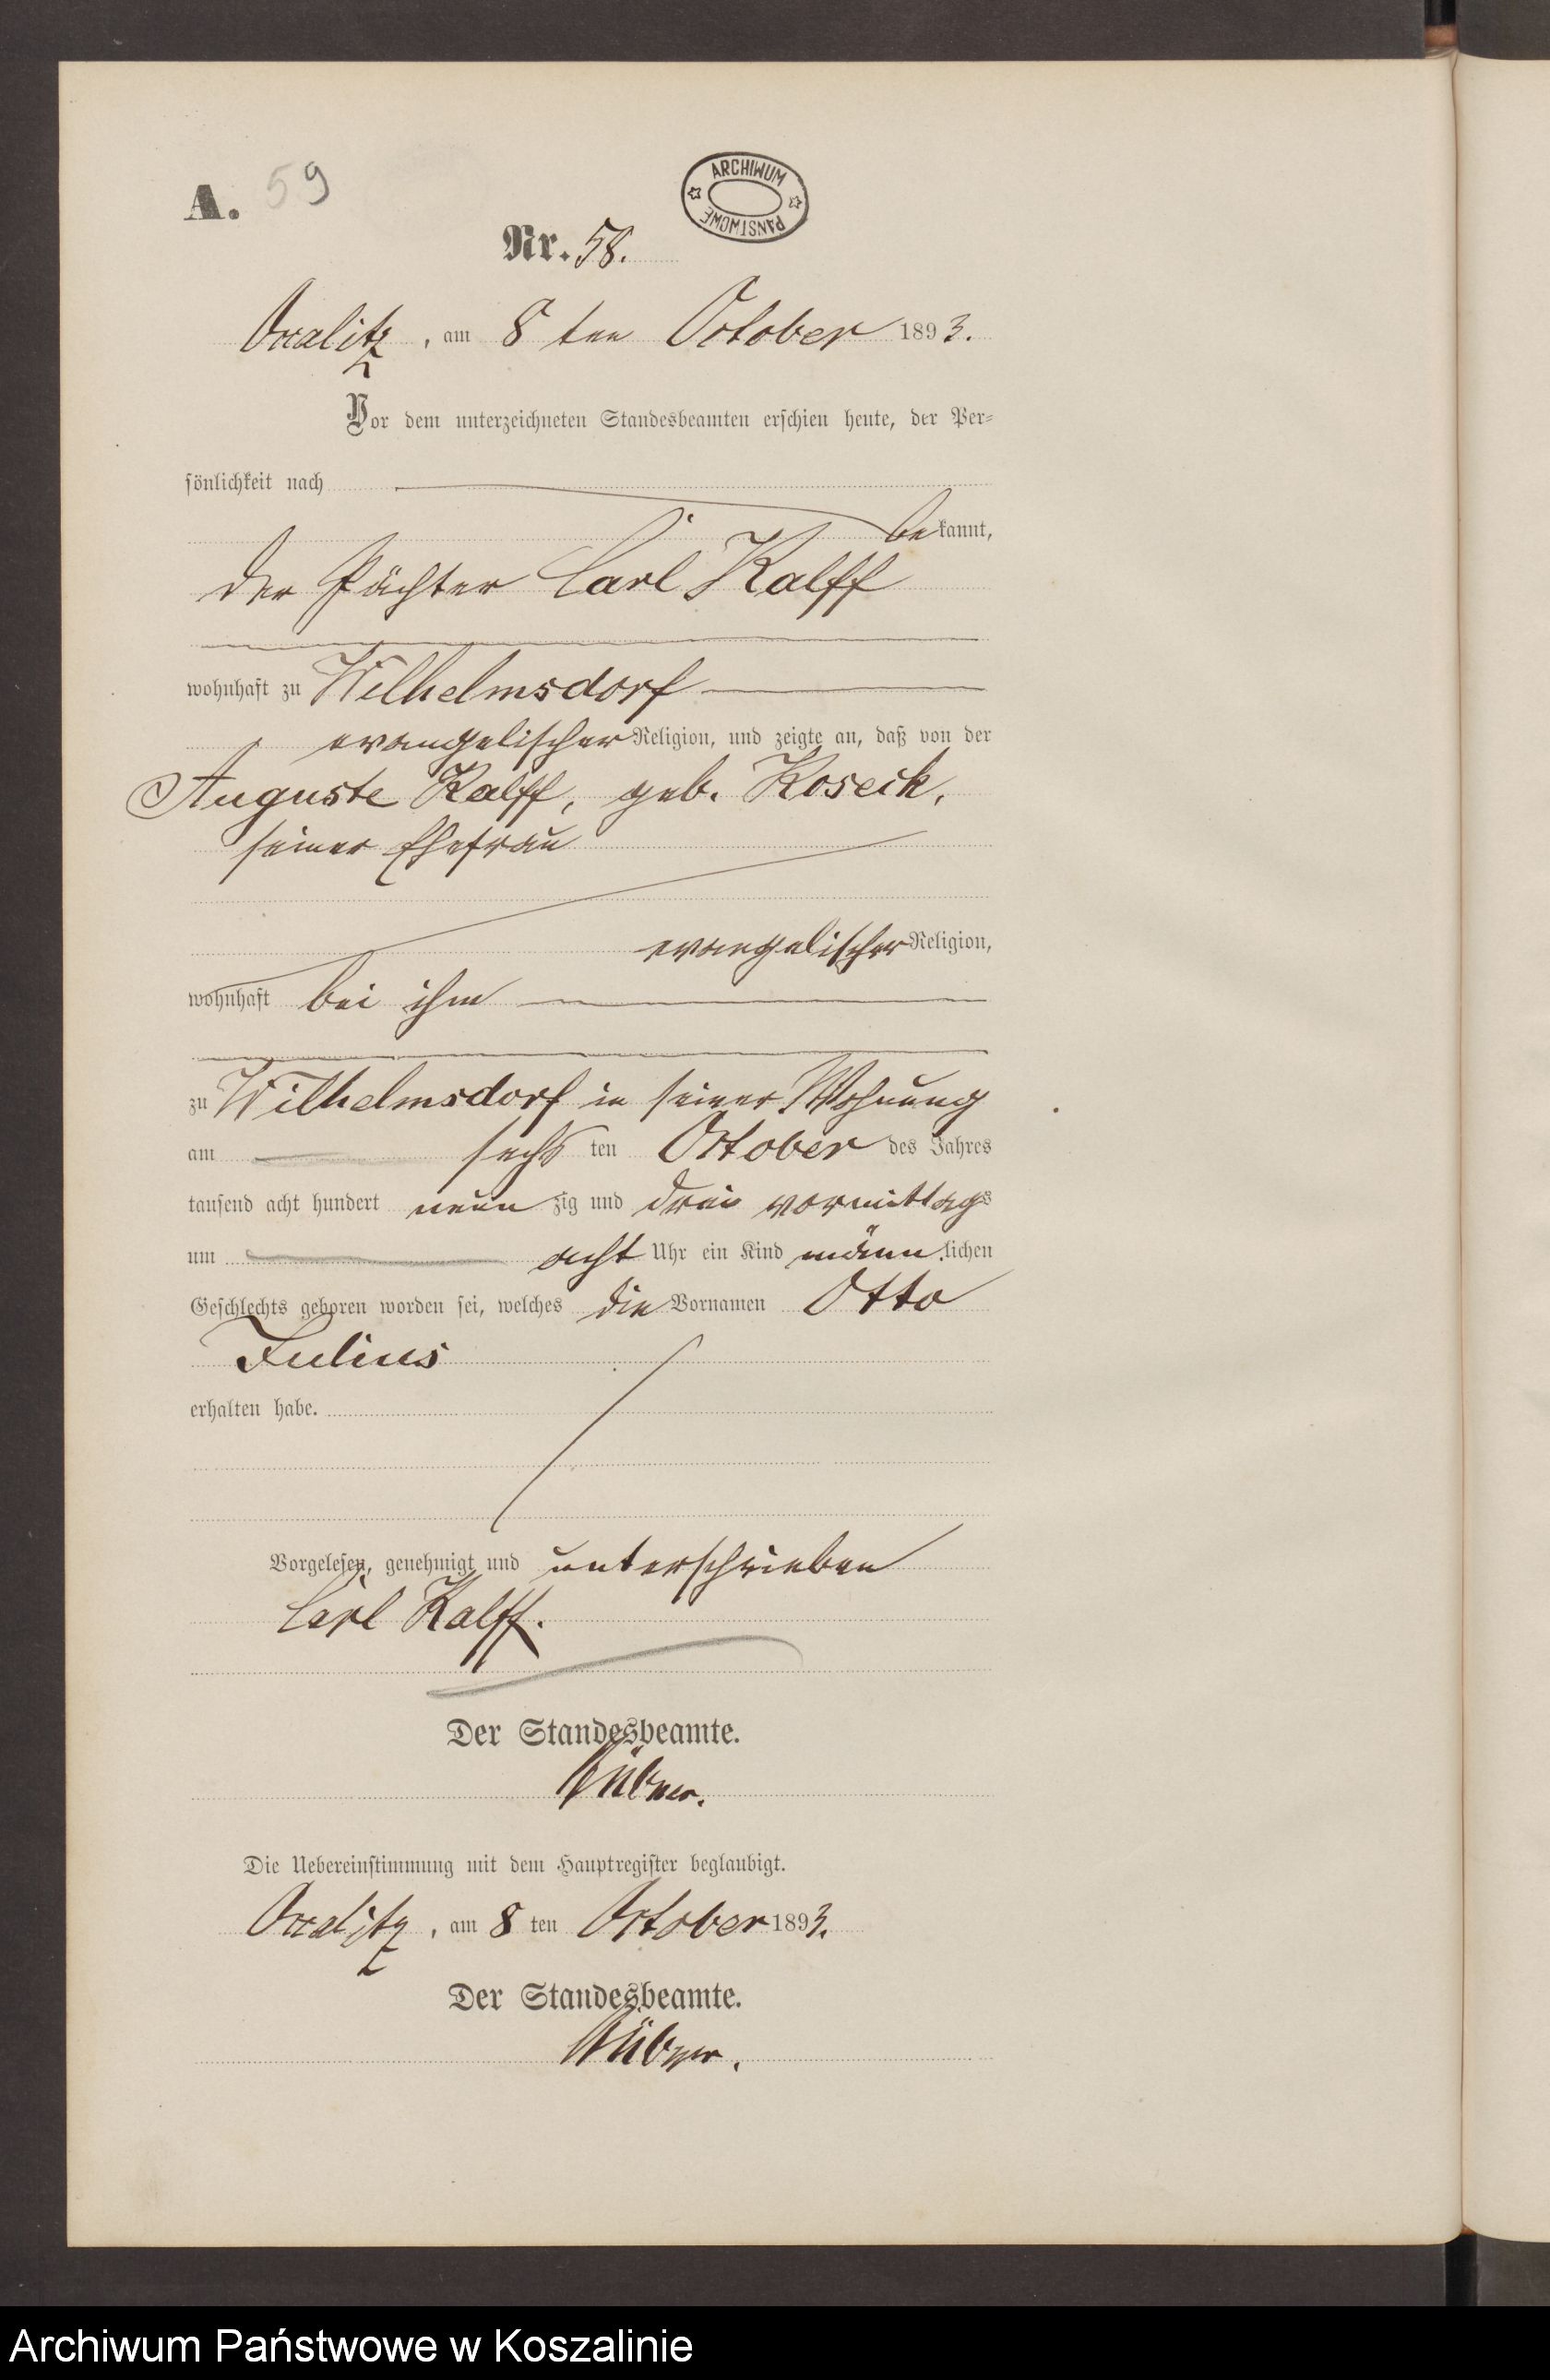 A. 59
ARCHIWUM PAŃSTWOWE
Nr. 58.
am 8 ten October 1893.
Vor dem unterzeichneten Standesbeamten erschien heute, der Per=
sönlichkeit nach
bekannt,
der Pächter Carl Kalff
wohnhaft zu Wilhelmsdorf
evangelischer Religion, und zeigte an, daß von der
Auguste Kalff, geb. Koseck,
seiner Ehefrau
evangelischer Religion,
wohnhaft bei ihm
zu Wilhelmsdorf in seiner Wohnung
am sechs ten October des Jahres
tausend acht hundert neun zig und drei vormittags
um acht Uhr ein Kind männ lichen
Geschlechts geboren worden sei, welches die Vornamen Otto
Julius
erhalten habe.
Vorgelesen, genehmigt und unterschrieben
Carl Kalff.
Der Standesbeamte.
Die Uebereinstimmung mit dem Hauptregister beglaubigt.
am 8 ten October 1893.
Der Standesbeamte.
Archiwum Państwowe w Koszalinie